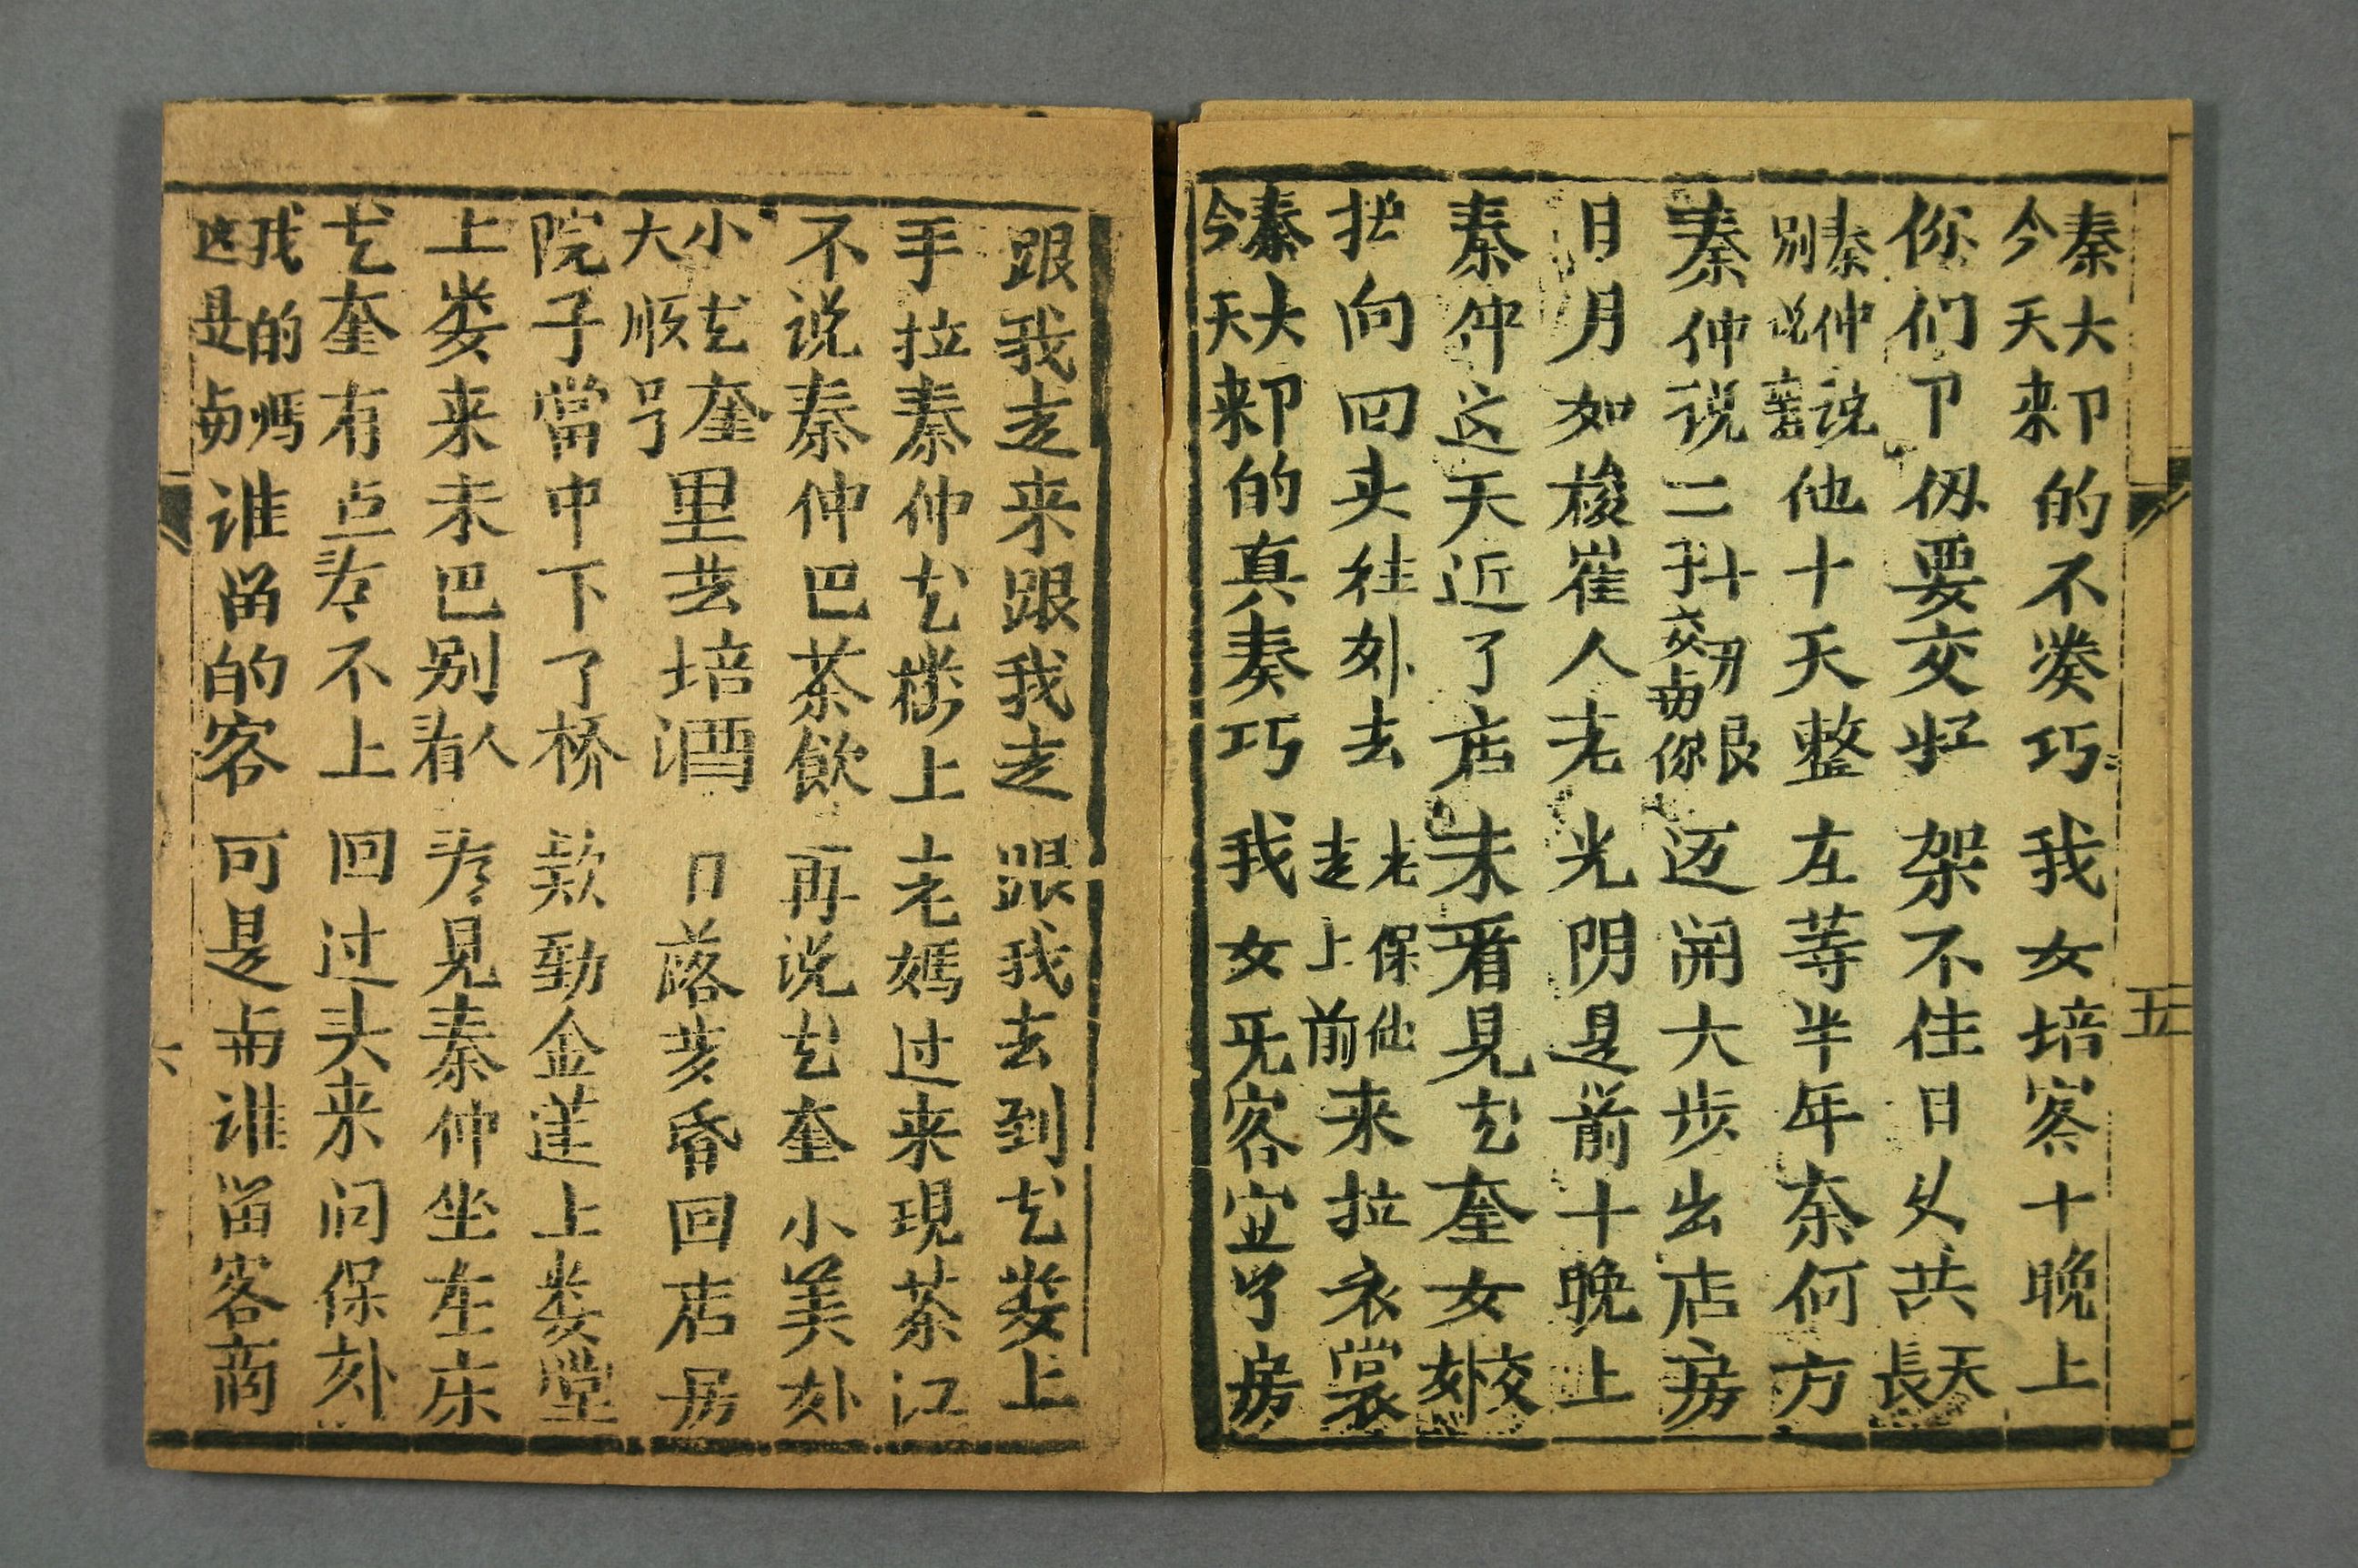 秦大卩今天来的不凑巧我女培客十晚上
你们卩仍要交好架不住日久共天長
秦仲说别说他十天整左等半年奈何方
秦仲说二斗迈開大步出店房
日月如梭崔人老光阴是前十晚上
秦仲这天近了店未看見花奎女姣
扭向回头往外去老保走上前来拉衣裳
秦大卩今天来的真奏巧我女旡客宜了房
五
跟我走来跟我走跟我去到花娄上
手拉秦仲花楼上老媽过来現茶江
不说秦仲巴茶飲再说花奎小美
小花奎大順号里去培酒日落黄昏回店房
院子當中下了桥款動金蓮上娄堂
上娄来未巴别人看为見秦仲坐在床
花奎有点不上回过头来问保
我的媽这是与谁留的客可是与谁留客商
六